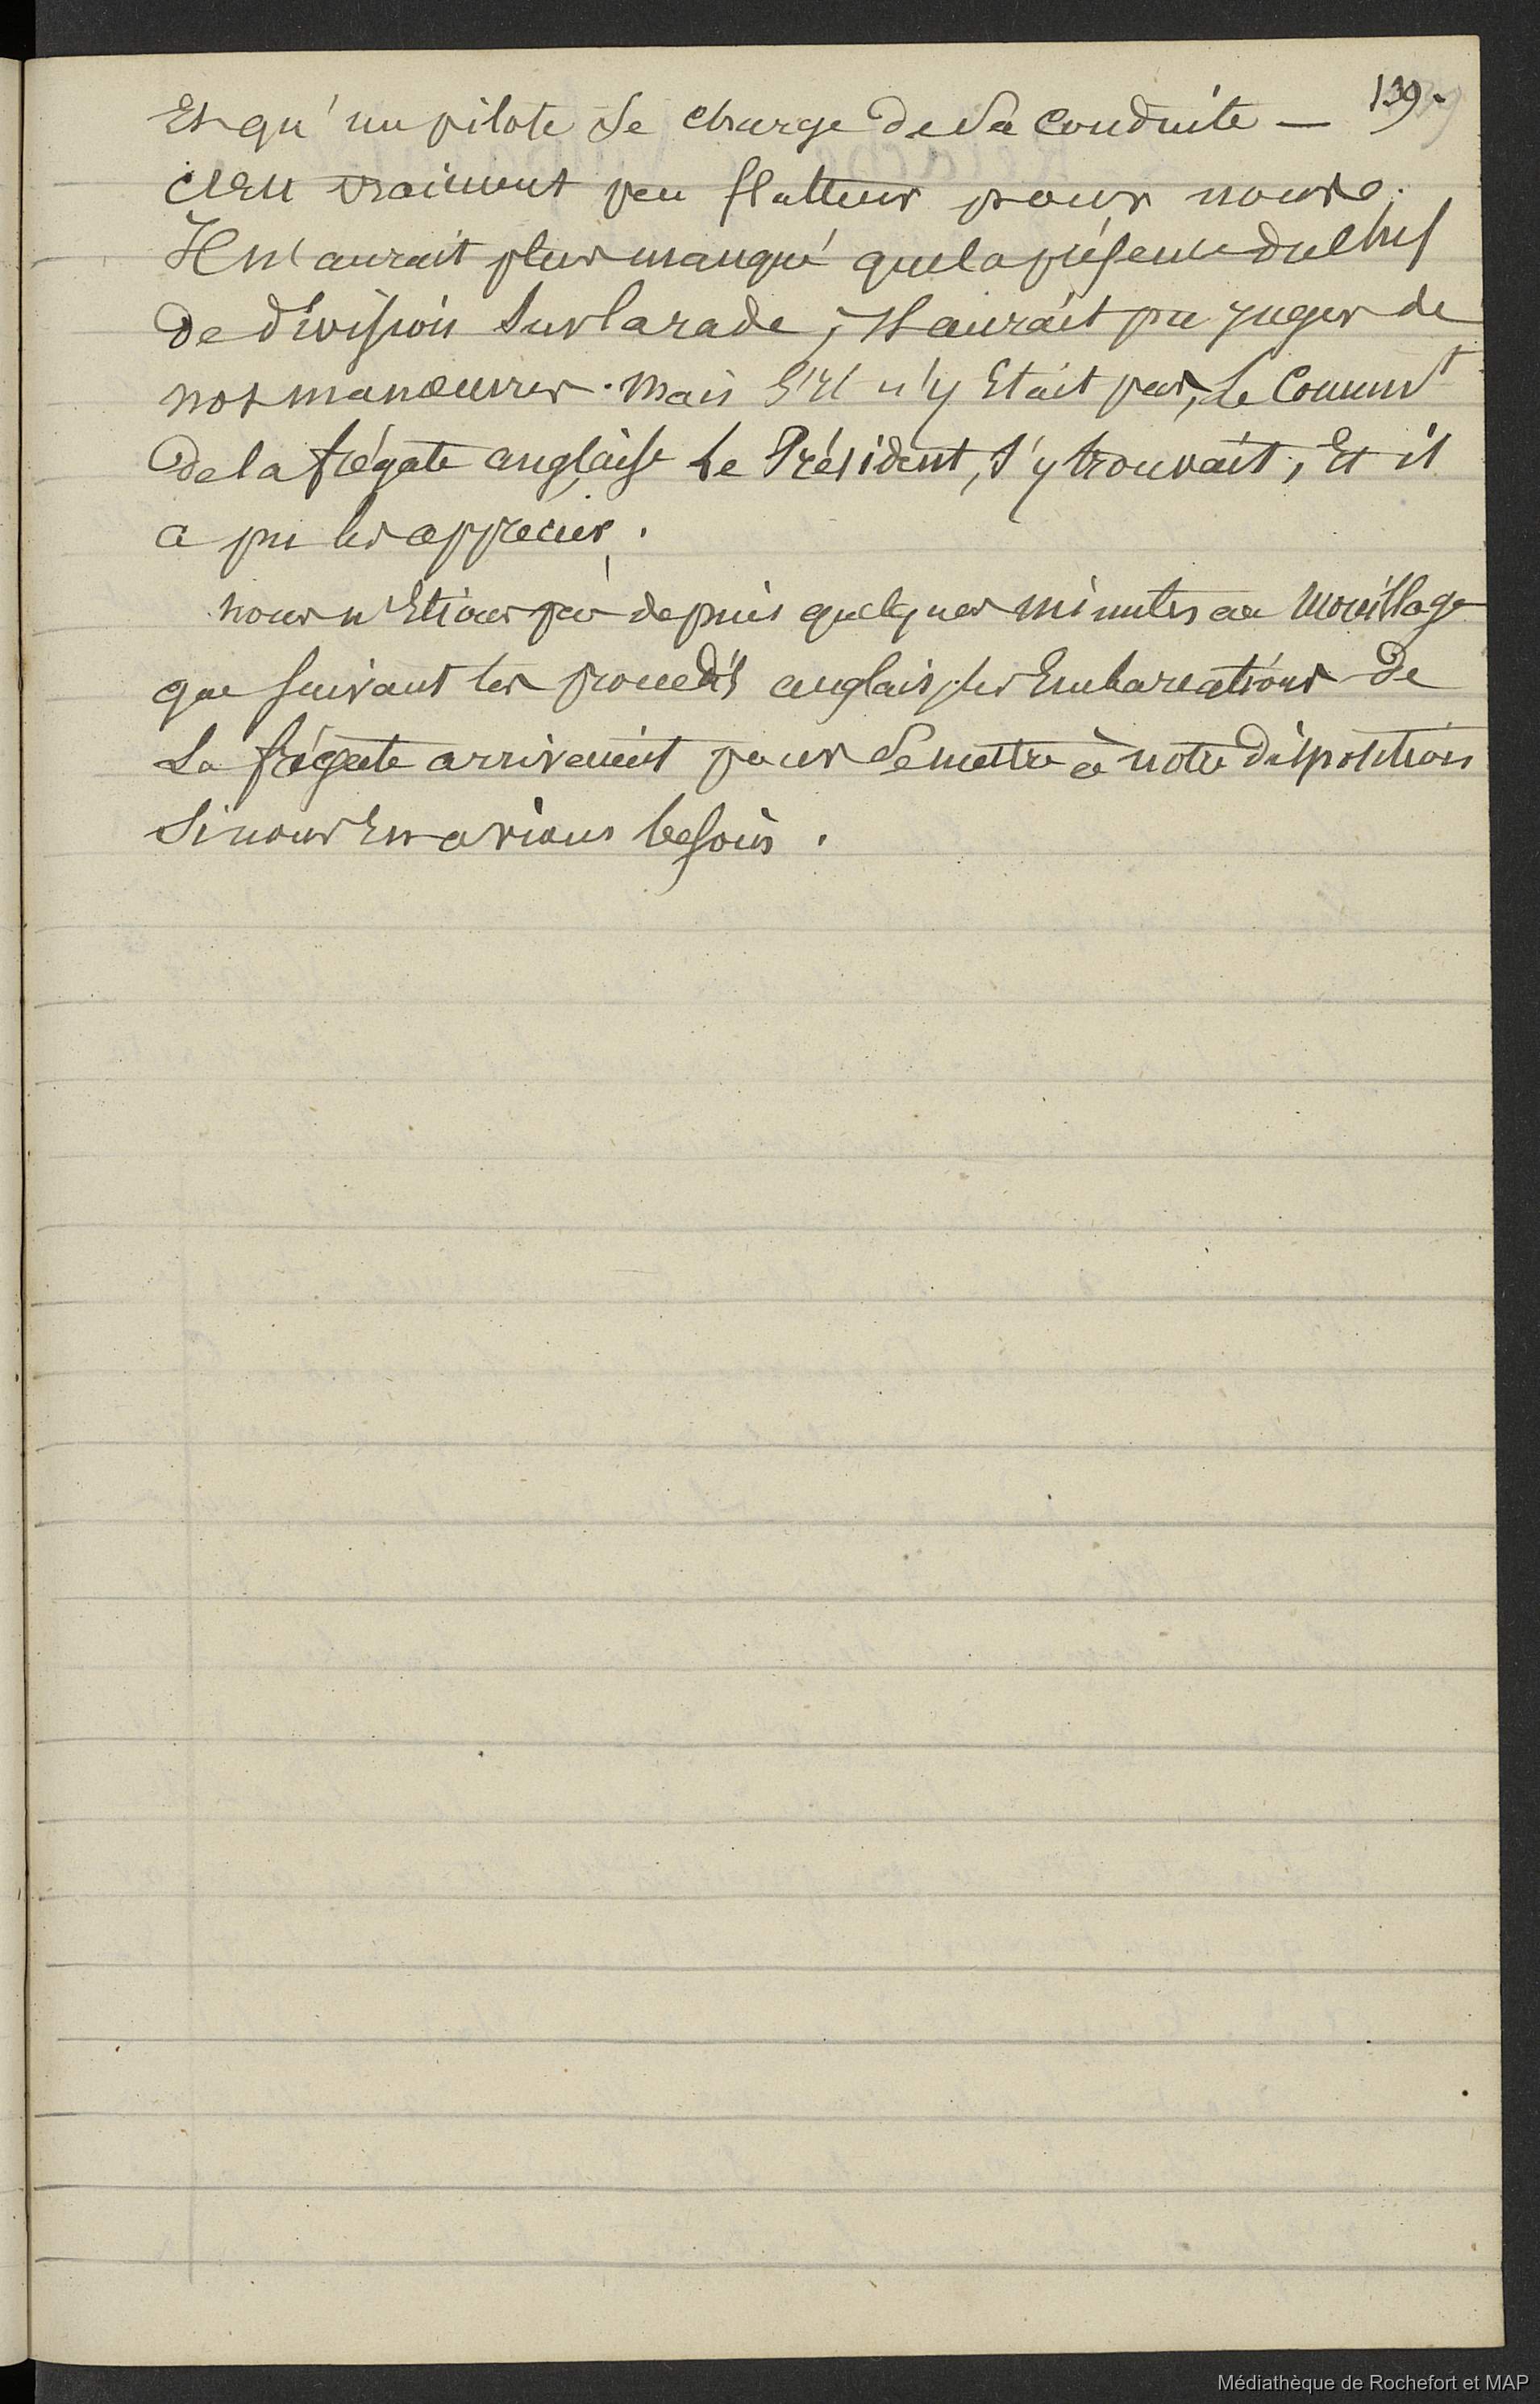 139.
Et qu'un pilote se charge de sa conduite —
c'est vraiment peu flatteur pour nous.
Il n'aurait plus manqué que la présence du chef
de division sur la rade, il aurait pu juger de
nos manœuvres. Mais s'il n'y était pas, le Command^t
de la frégate anglaise Le Président, s'y trouvait, et il
a pu les apprécier.
nous n'étions pas depuis quelques minutes au mouillage
que suivant les procédés anglais, les Embarcations de
La frégate arrivaient pour se mettre à notre disposition
si nous en avions besoin.
Médiathèque de Rochefort et MAP